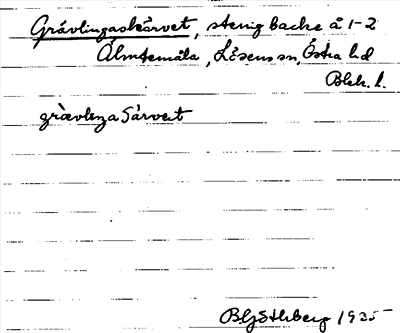 Grävlingaskärvet, stenig backe å 1-2
Almtemåla, Lösens sn, Östra hd
Blek. l.
grävlenga Särvet
B Göthberg 1935